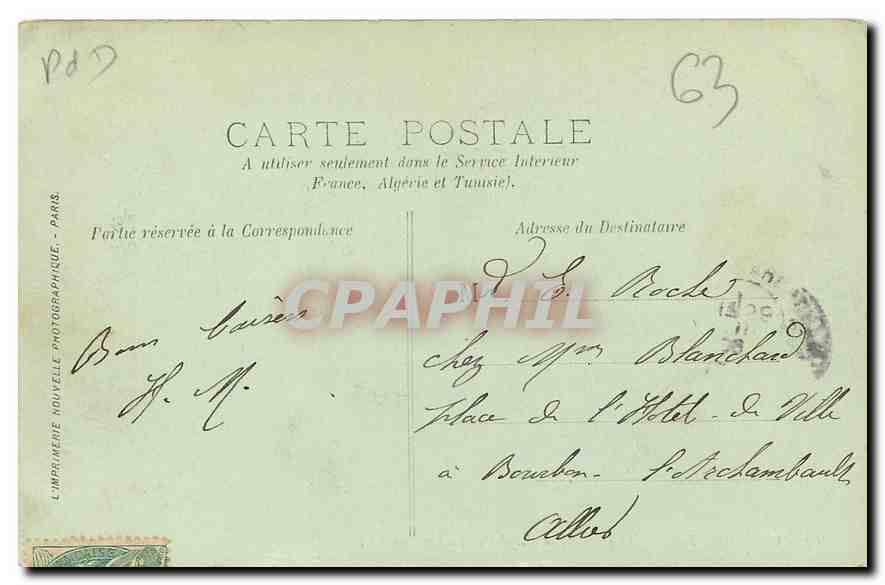 PdD
63
CARTE POSTALE
A utiliser seulement dans le Service Interieur
(France, Algérie et Tunisie).
Partie réservée à la Correspondance
Adresse du Destinataire
L'IMPRIMERIE NOUVELLE PHOTOGRAPHIQUE. - PARIS.
CPAPHIL
Bons baisers
H. M.
E. Roche
chez Mme Blanchard
place de l'Hotel-de Ville
à Bourbon-l'Archambault
Allier